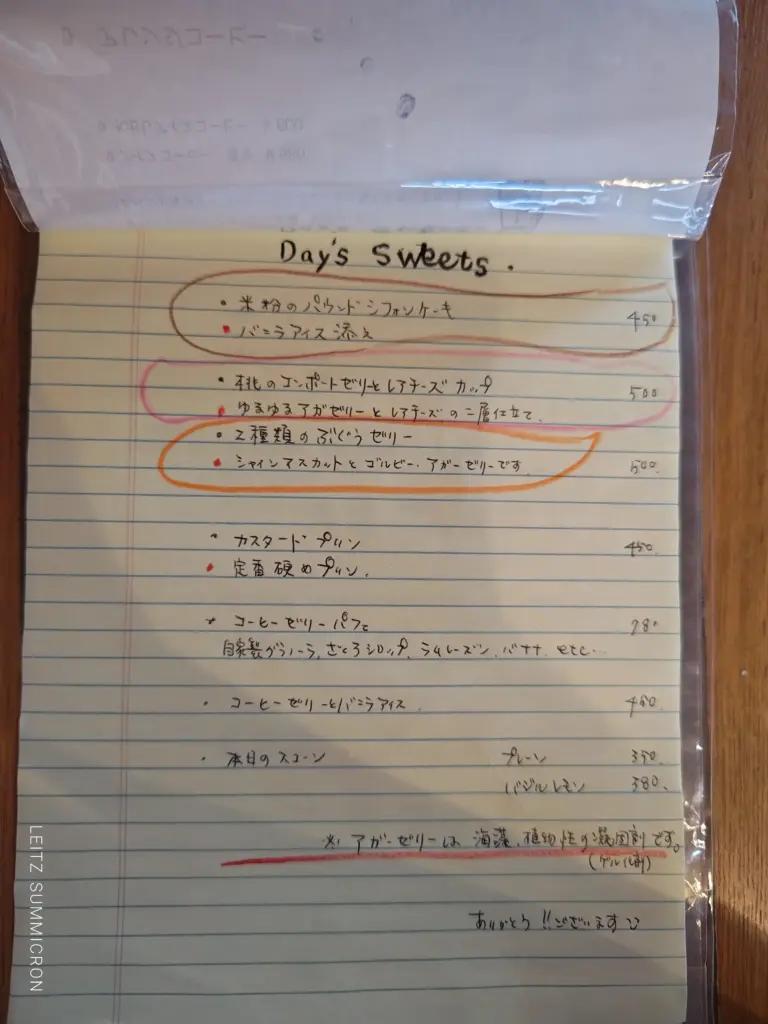 Day's Sweets.
• 米粉のパウンドシフォンケーキ 450
• バニラアイス添え
• 桃のコンポートゼリーとレアチーズカップ 500
• ゆるゆるアガゼリーとレアチーズの二層仕立て。
• 2種類のぶどうゼリー
• シャインマスカットとゴルビー・アガーゼリーです 500.
• カスタードプリン 450.
• 定番硬めプリン.
• コーヒーゼリーパフェ
自家製グラノーラ、ざくろシロップ、ラムレーズン、バナナ、etc...
• コーヒーゼリーとバニラアイス. 450.
• 本日のスコーン プレーン 350.
バジルレモン 380.
※ アガーゼリーは海藻、植物性の凝固剤です。
(ゲル化剤)
ありがとう!!ございます
LEITZ SUMMICRON